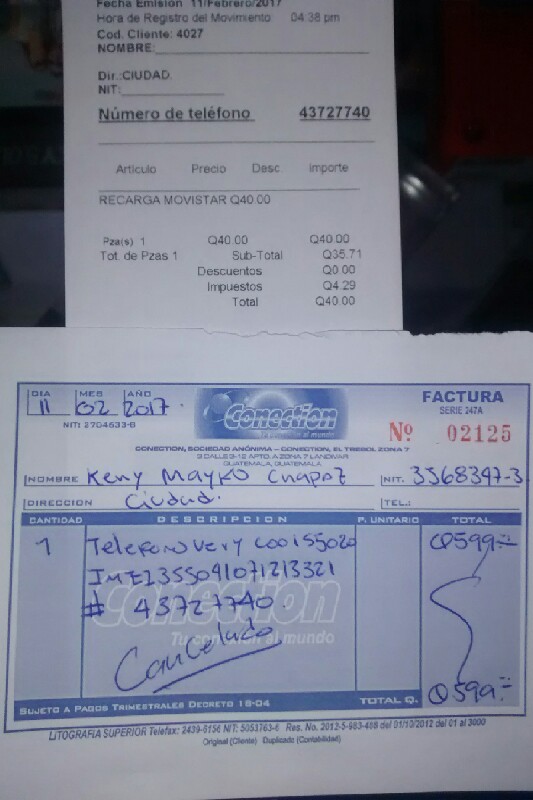 Fecha Emisión 11/Febrero/2017
Hora de Registro del Movimiento: 04:38 pm
Cod. Cliente: 4027
NOMBRE:
Dir.:CIUDAD.
NIT:
Número de teléfono 43727740
Articulo Precio Desc Importe
RECARGA MOVISTAR Q40.00
Pza(s) 1 Q40.00 Q40.00
Tot. de Pzas 1 Sub-Total Q35.71
Descuentos Q0.00
Impuestos Q4.29
Total Q40.00
DIA MES AÑO
11 02 2017
NIT:
Conection
Tu conexión al mundo
FACTURA
SERIE 247A
Nº 02125
CONECTION, SOCIEDAD ANÓNIMA - CONECTION, EL TREBOL ZONA 7
APTO. A ZONA 7 LANDIVAR
GUATEMALA, GUATEMALA
NOMBRE Keny Mayko NIT. 3568347-3
DIRECCION Ciudad. TEL.:
CANTIDAD DESCRIPCION P. UNITARIO TOTAL
1 Telefono Very Q599.-
IMEI 355041071213321
# 43727740.
Conection
Tu conexión al mundo
Cancelado
SUJETO A PAGOS TRIMESTRALES DECRETO 18-04 TOTAL Q. Q599.-
LITOGRAFIA SUPERIOR Telefax: 2439-8156 NIT: 5053763-6 Res. No. 2012-5-983-488 del 01/10/2012 del 01 al 3000
Original (Cliente) Duplicado (Contabilidad)